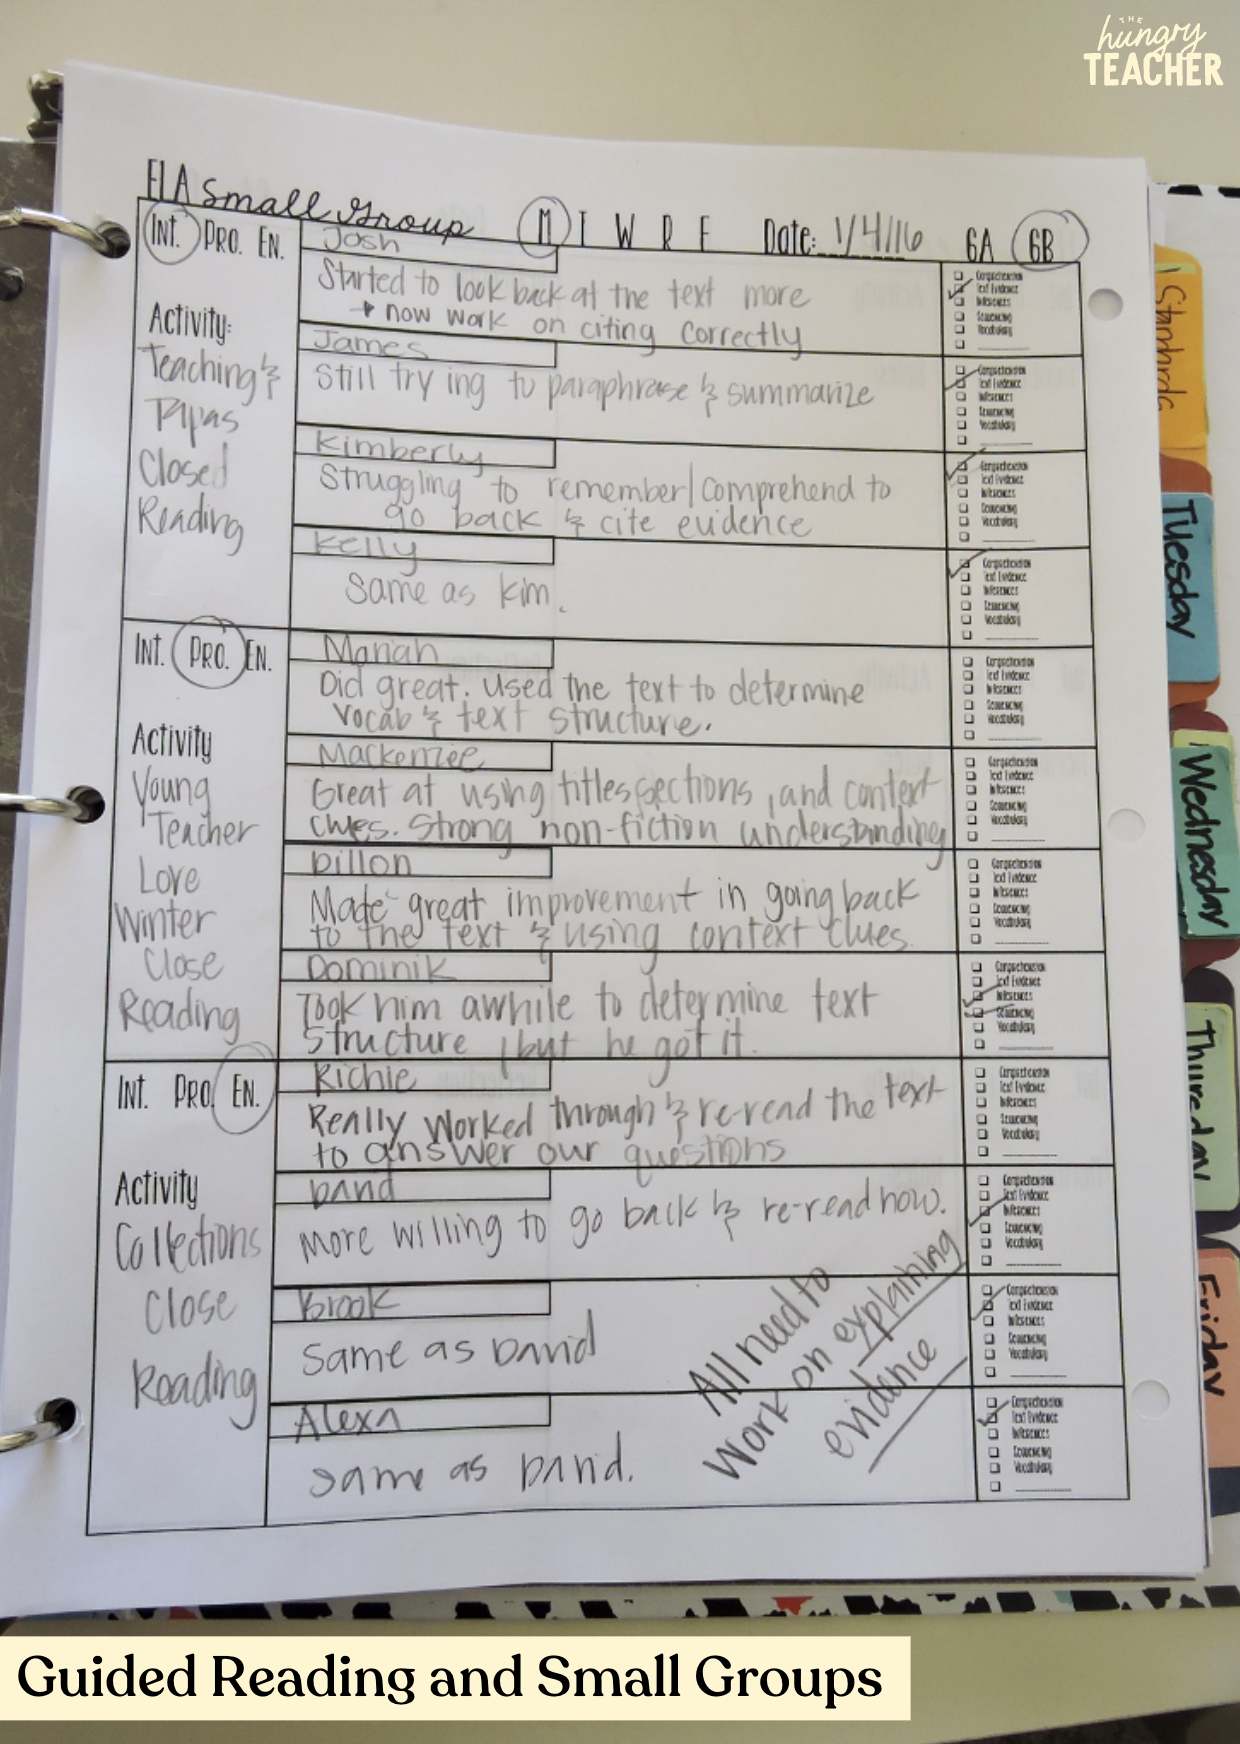 THE
hungry
TEACHER
ELA Small Group M T W R F Date: 1/4/16 6A 6B
Int. Pro. En.
Activity:
Teaching &
Papas
Closed
Reading
Josh
Started to look back at the text more
→ now work on citing correctly
James
Still trying to paraphrase & summarize
Kimberly
Struggling to remember/comprehend to
go back & cite evidence
Kelly
Same as Kim.
Int. Pro. En.
Activity
Young
Teacher
Love
Winter
Close
Reading
Mariah
Did great. Used the text to determine
vocab & text structure.
Mackenzie
Great at using titles, sections, and context
clues. Strong non-fiction understanding
Dillon
Made great improvement in going back
to the text & using context clues.
Dominik
Took him awhile to determine text
structure, but he got it.
Int. Pro. En.
Activity
Collections
Close
Reading
Richie
Really worked through & re-read the text
to answer our questions
David
More willing to go back & re-read now.
Brook
Same as David
Alexa
Same as David.
All need to
work on explaining
evidence
Comprehension
Text Evidence
Inferences
Sequencing
Vocabulary
Comprehension
Text Evidence
Inferences
Sequencing
Vocabulary
Comprehension
Text Evidence
Inferences
Sequencing
Vocabulary
Comprehension
Text Evidence
Inferences
Sequencing
Vocabulary
Comprehension
Text Evidence
Inferences
Sequencing
Vocabulary
Comprehension
Text Evidence
Inferences
Sequencing
Vocabulary
Comprehension
Text Evidence
Inferences
Sequencing
Vocabulary
Comprehension
Text Evidence
Inferences
Sequencing
Vocabulary
Comprehension
Text Evidence
Inferences
Sequencing
Vocabulary
Comprehension
Text Evidence
Inferences
Sequencing
Vocabulary
Comprehension
Text Evidence
Inferences
Sequencing
Vocabulary
Comprehension
Text Evidence
Inferences
Sequencing
Vocabulary
Tuesday
Wednesday
Thursday
Friday
Guided Reading and Small Groups